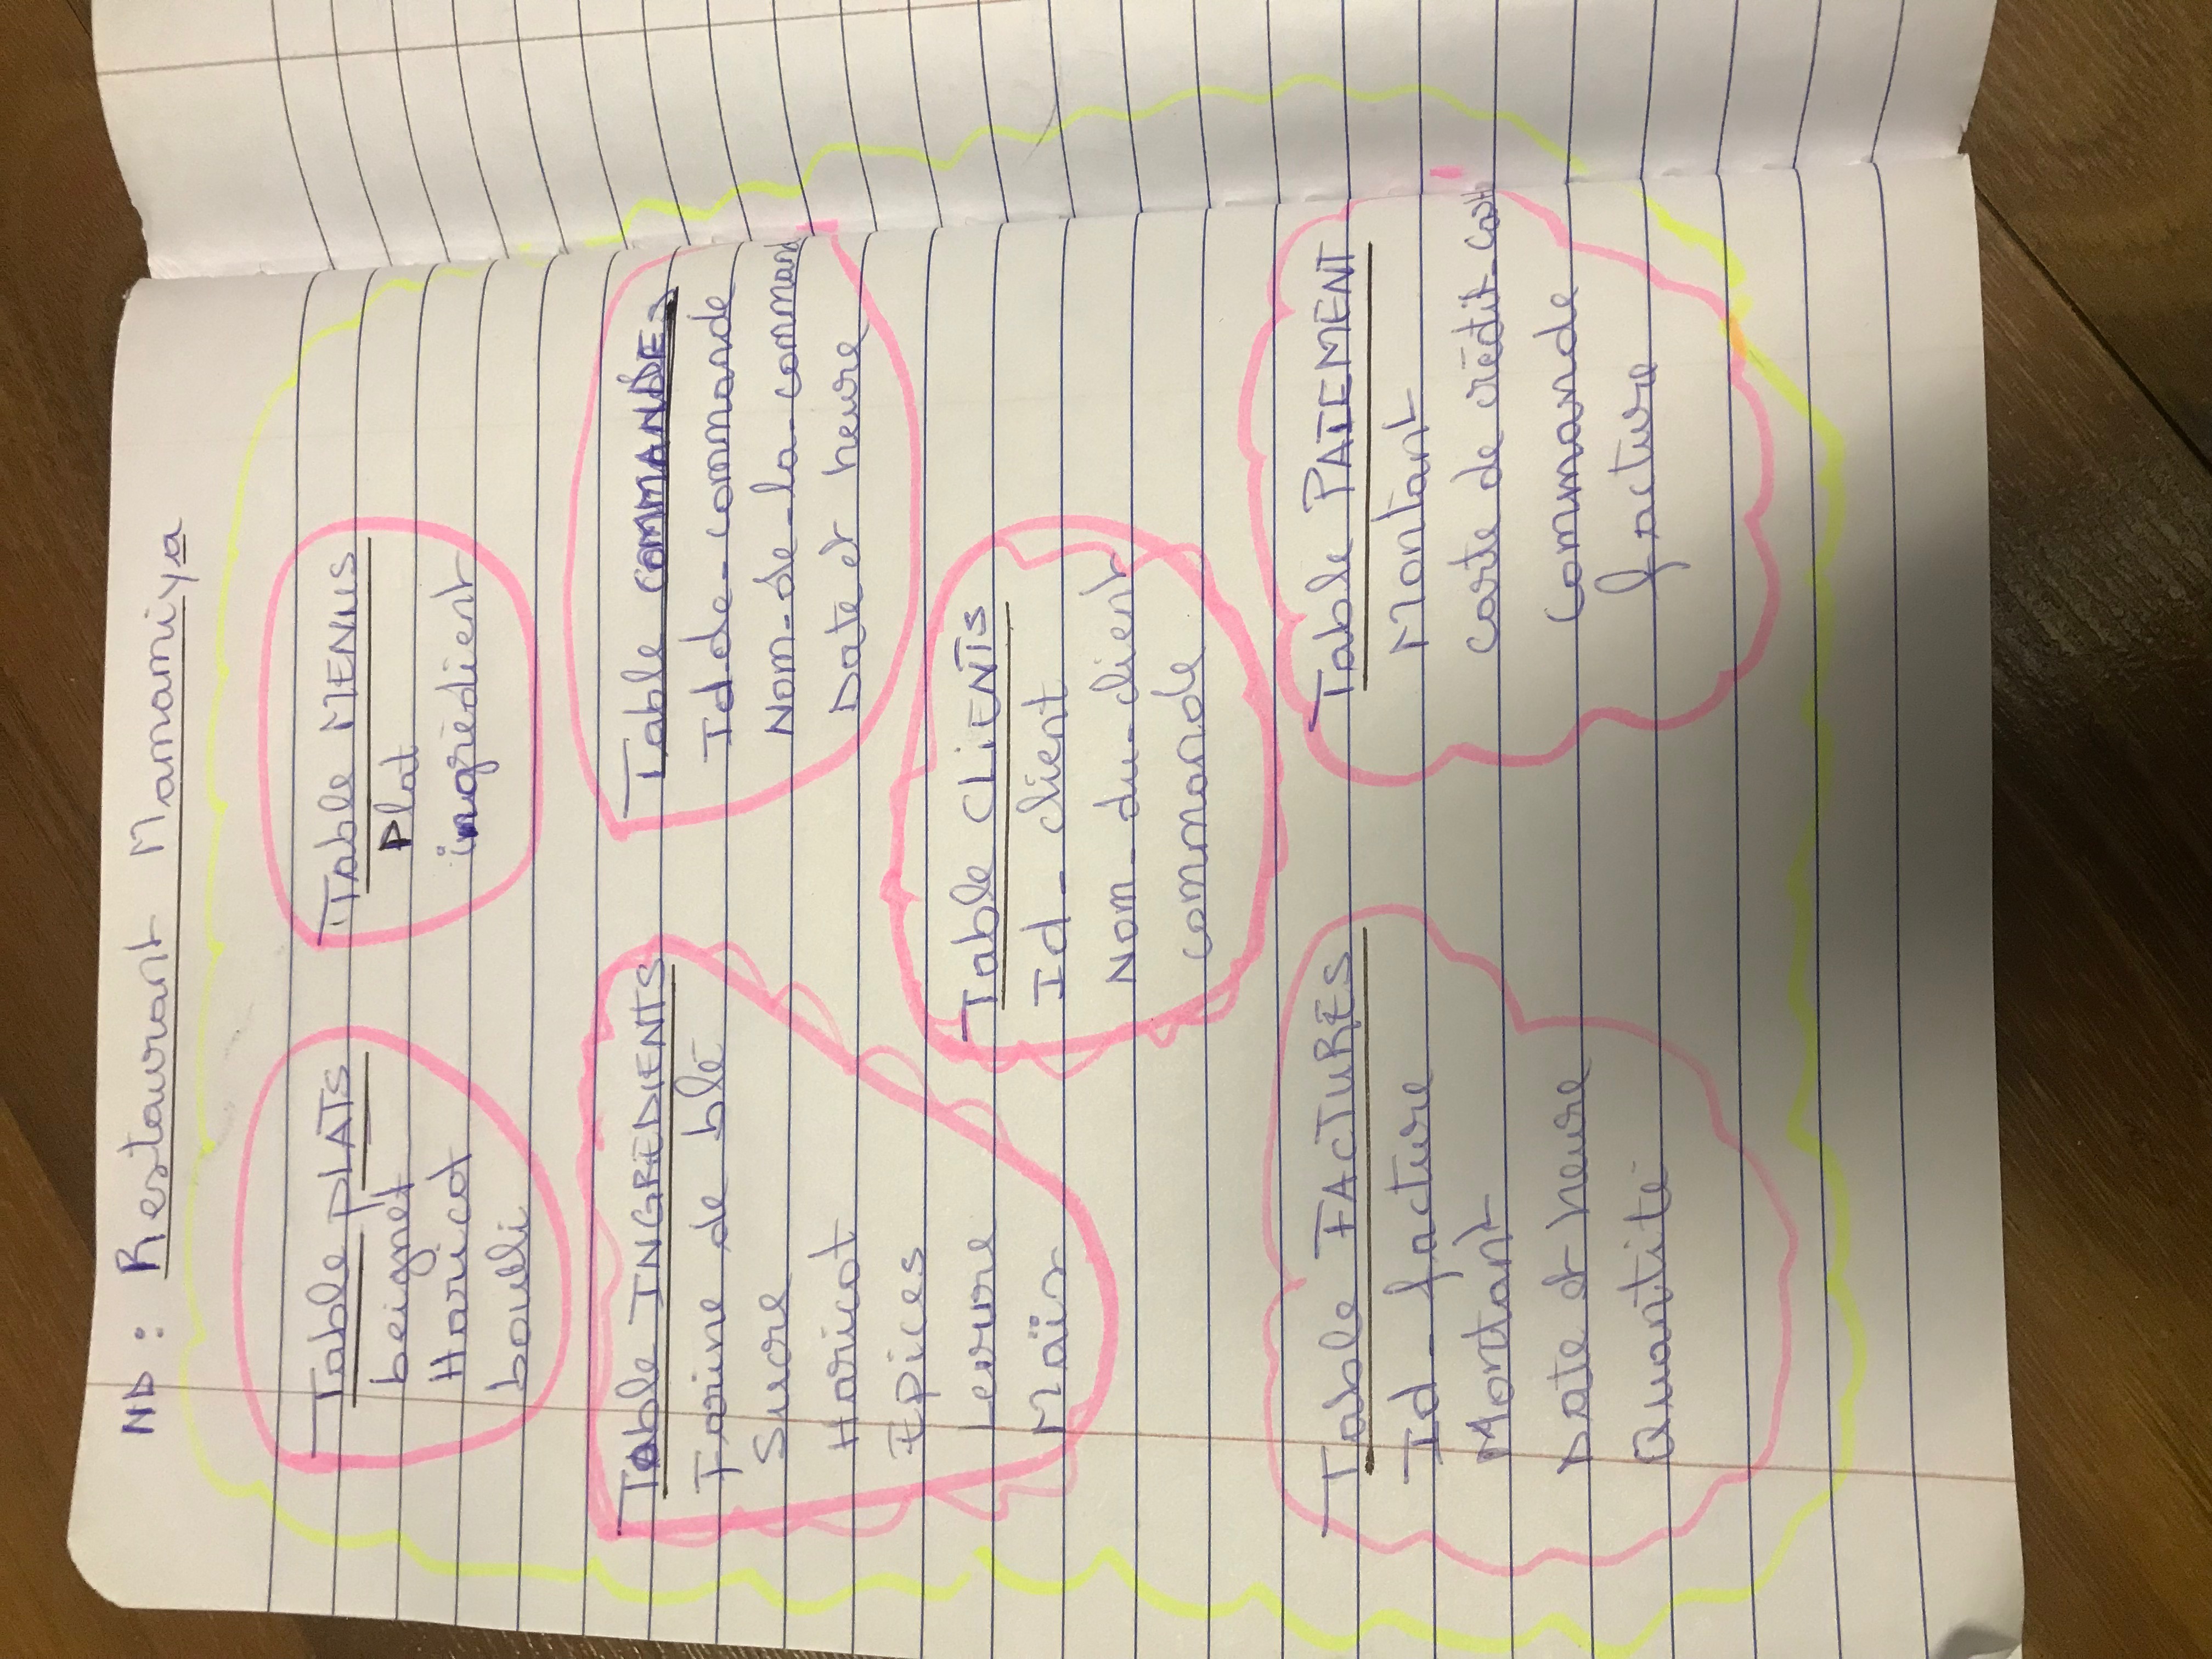 ND : Restaurant Mamamiya
Table PLATS
beignet
Haricot
bouilli
Table MENUS
Plat
ingrédient
Table INGREDIENTS
Farine de blé
Sucre
Haricot
Epices
Levure
Maïs
Table COMMANDES
Id-de-commande
Nom-de-la-command
Date et heure
Table CLIENTS
Id-client
Nom-du-client
commande
Table FACTURES
Id-facture
Montant
Date et heure
Quantité
Table PAIEMENT
Montant
Carte de crédit-Cash
Commande
facture